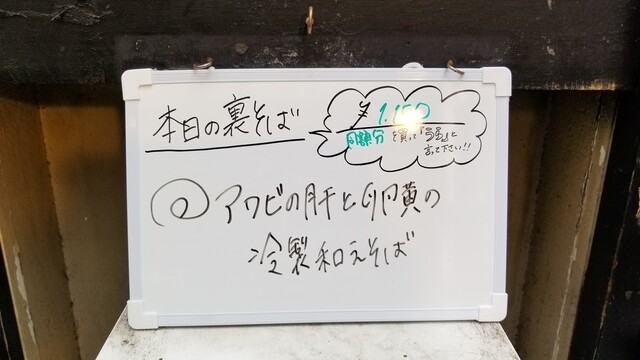 本日の裏そば
¥1,150
同額分を買って『裏』と
言って下さい!!
アワビの肝と卵黄の
冷製和えそば